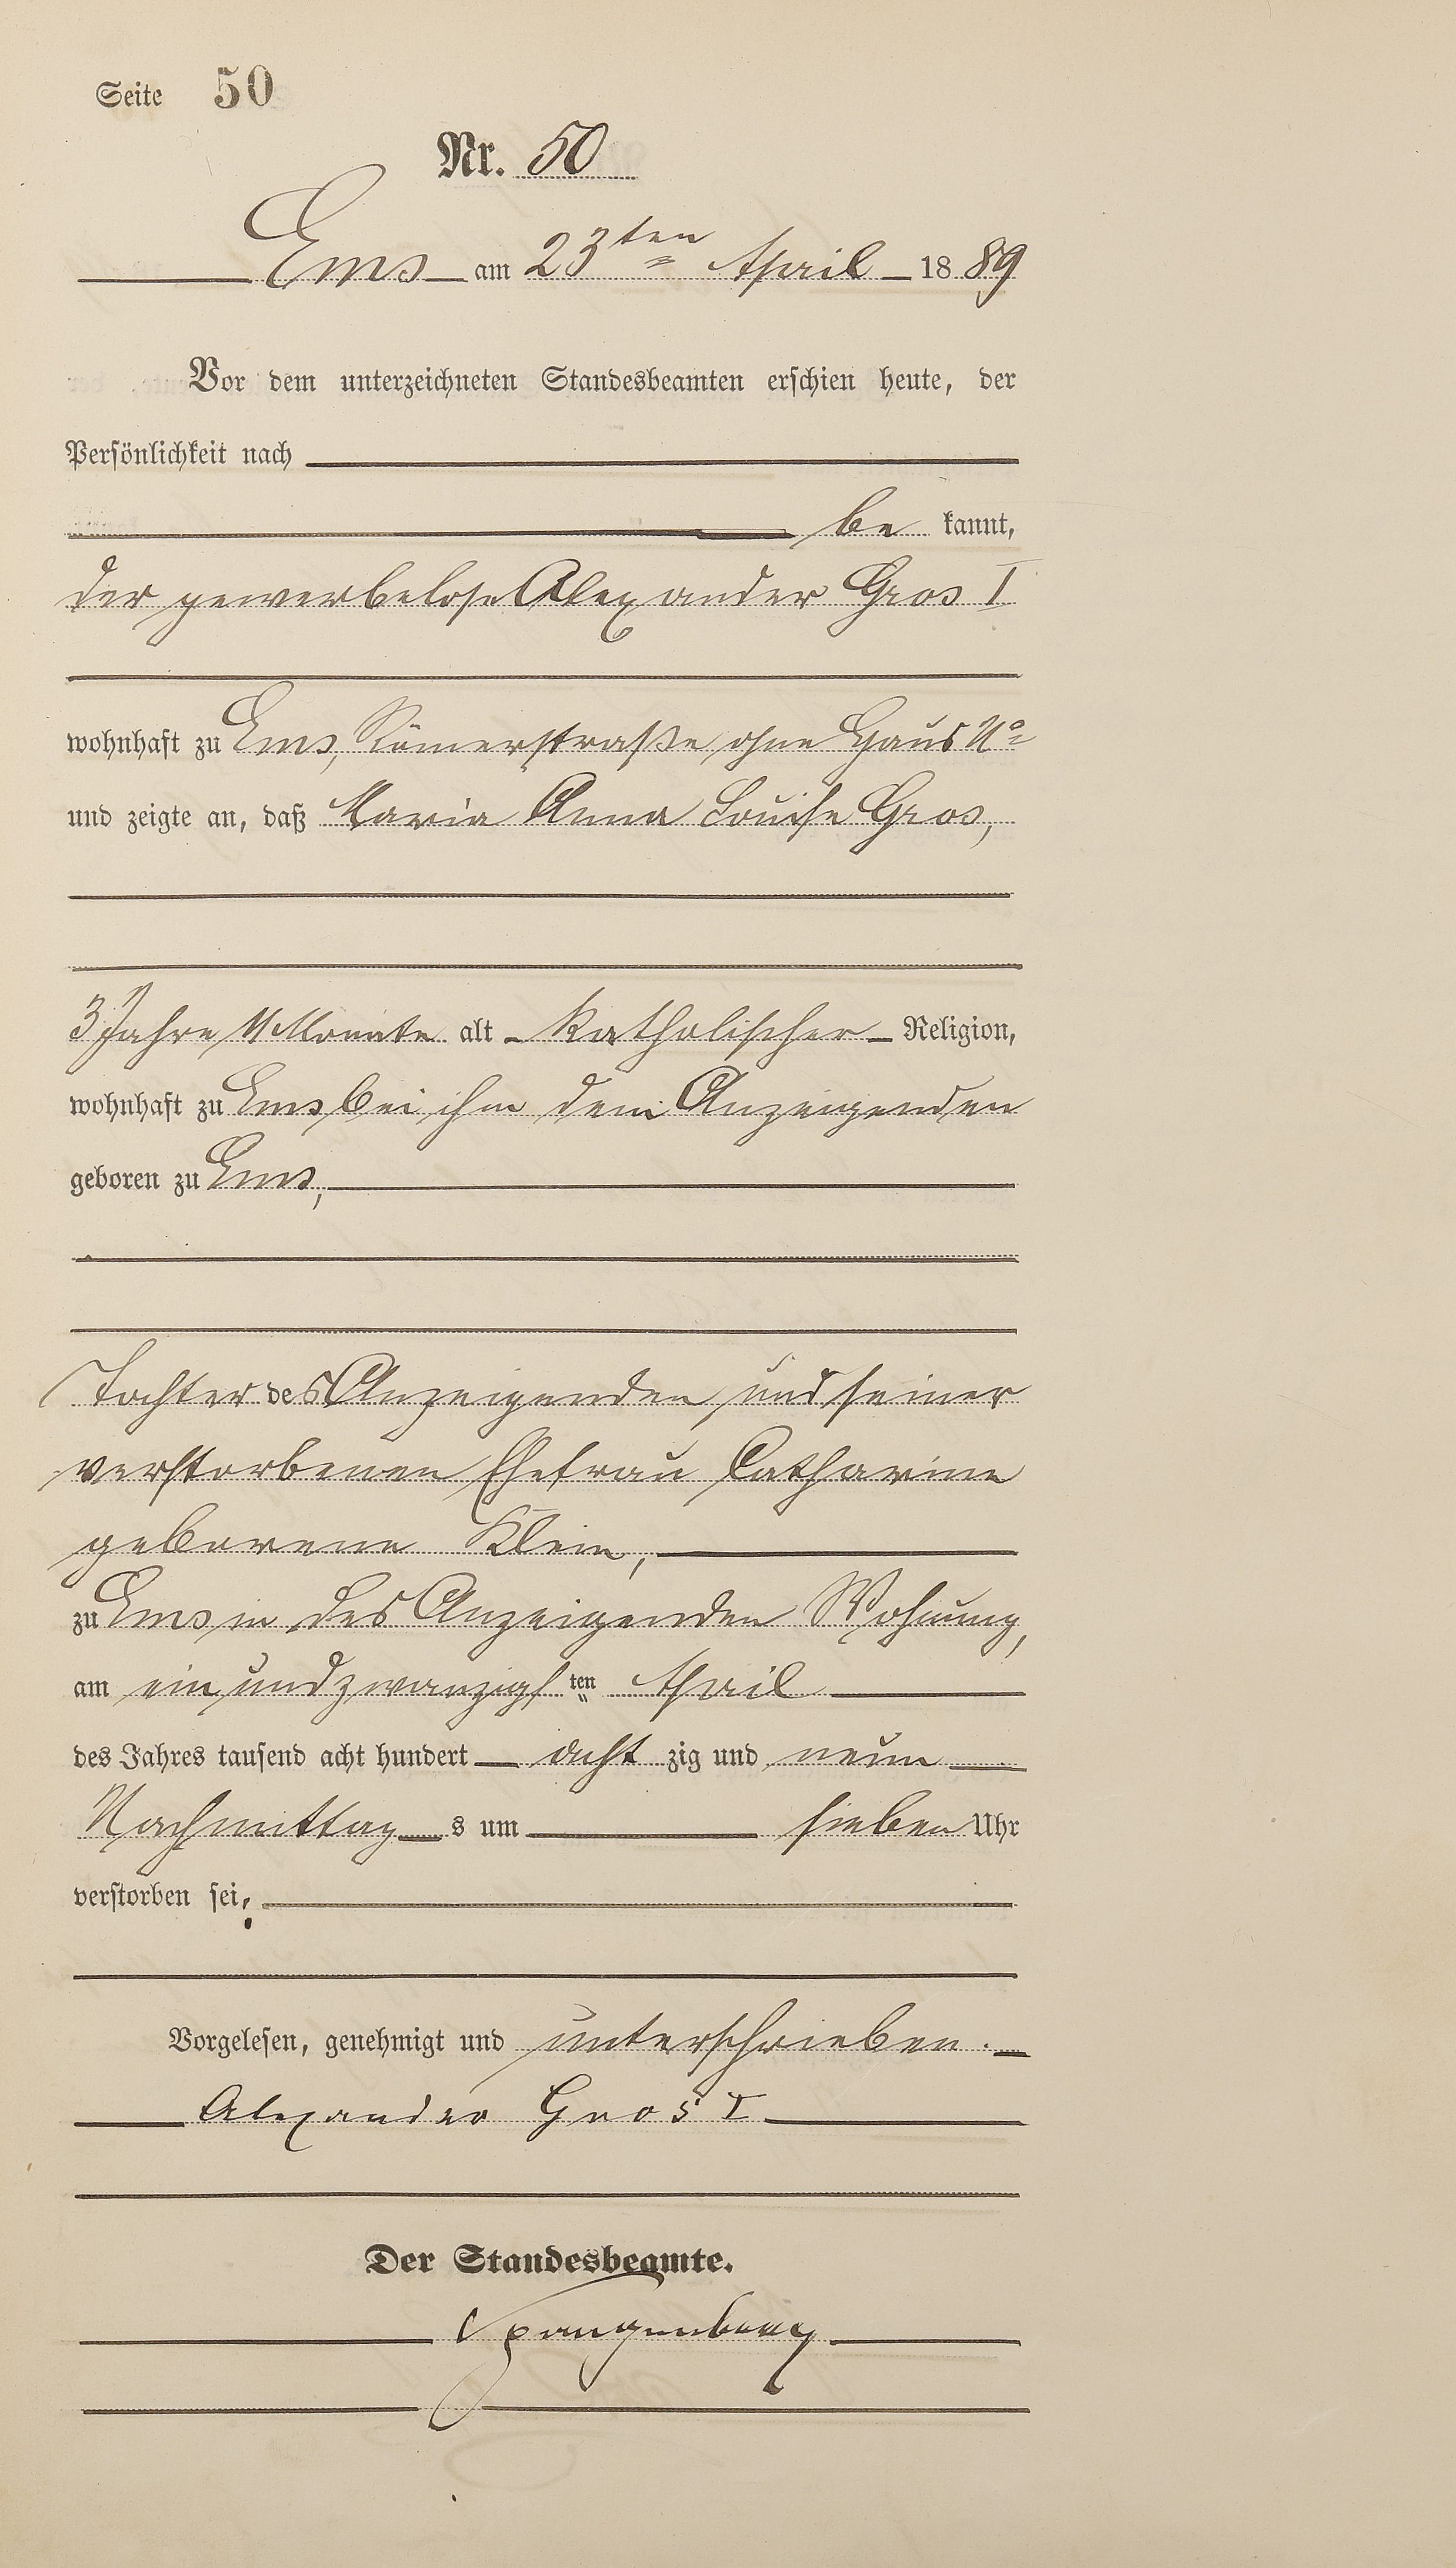 Seite 50
Nr. 50
Ems am 23ten April 1889
Vor dem unterzeichneten Standesbeamten erschien heute, der
Persönlichkeit nach
be kannt,
der gewerbelose Alexander Gros I
wohnhaft zu Ems, Römerstraße ohne Haus No
und zeigte an, daß Maria Anna Louise Gros,
3 Jahre 11 Monate alt katholischer Religion,
wohnhaft zu Ems bei ihm dem Anzeigenden
geboren zu Ems,
Tochter des Anzeigenden und seiner
verstorbenen Ehefrau Catharine
geborene Klein,
zu Ems in des Anzeigenden Wohnung,
am ein und zwanzigsten April
des Jahres tausend acht hundert acht zig und neun
Nachmittags um sieben Uhr
verstorben sei.
Vorgelesen, genehmigt und unterschrieben.
Alexander Gros I
Der Standesbeamte.
Spangenberg